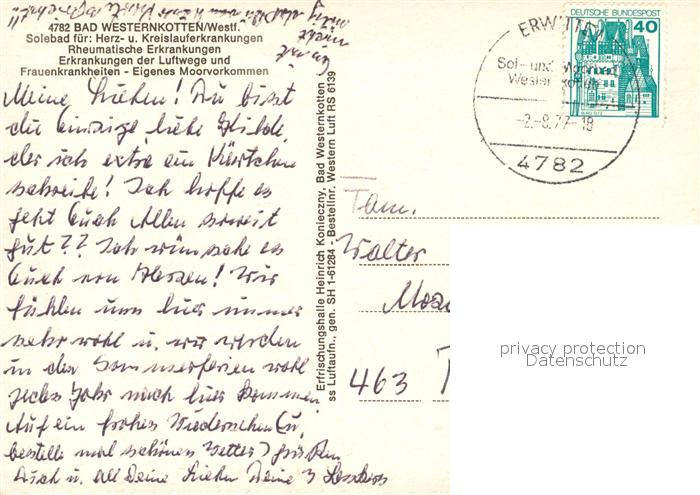 4782 BAD WESTERNKOTTEN/Westf.
Solebad für: Herz- u. Kreislauferkrankungen
Rheumatische Erkrankungen
Erkrankungen der Luftwege und
Frauenkrankheiten - Eigenes Moorvorkommen
Meine Lieben! Du bist
die einzige, liebe Hilde,
der ich extra ein Kärtchen
schreibe! Ich hoffe es
geht Euch Allen soweit
gut?? Ich wünsche es
Euch von Herzen! Wir
fühlen uns hier immer
sehr wohl u. wir werden
in den Sommerferien wohl
jedes Jahr nach hier kommen.
Auf ein frohes Wiedersehen (u.
bestelle mal schönes Wetter) grüßen
Dich u. All Deine Lieben Deine 3
Erfrischungshalle Heinrich Konieczny, Bad Westernkotten
ss Luftaufn., gen. SH 1-61284 - Bestellnr. Western Luft RS 6139
DEUTSCHE BUNDESPOST
40
ERWITTE
Sol- und Moorbad
Westernkotten
-2.-8.77-18
4782
Fam.
Walter
463
privacy protection
Datenschutz